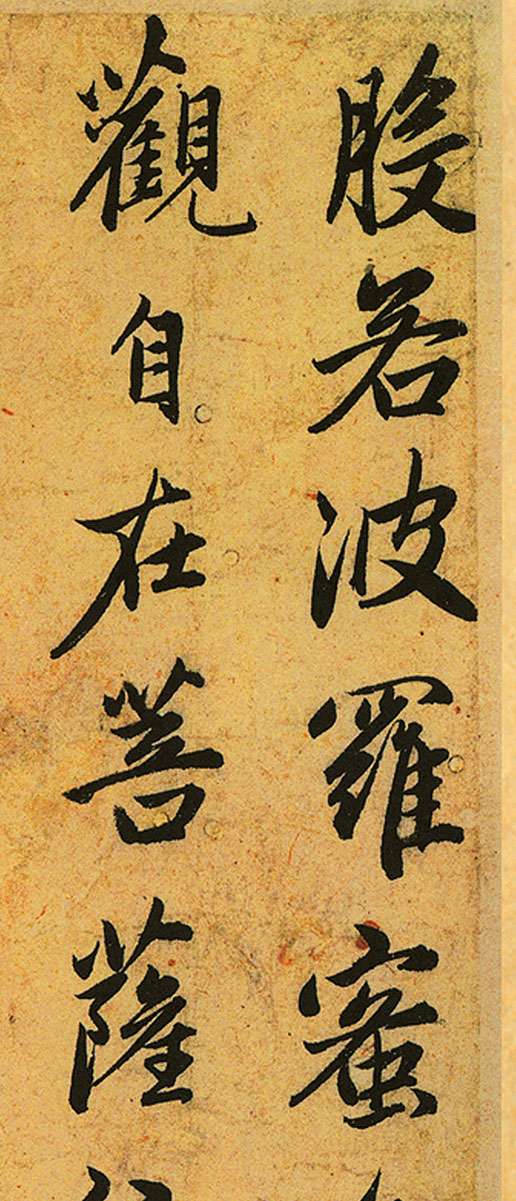 般若波羅蜜
觀自在菩薩